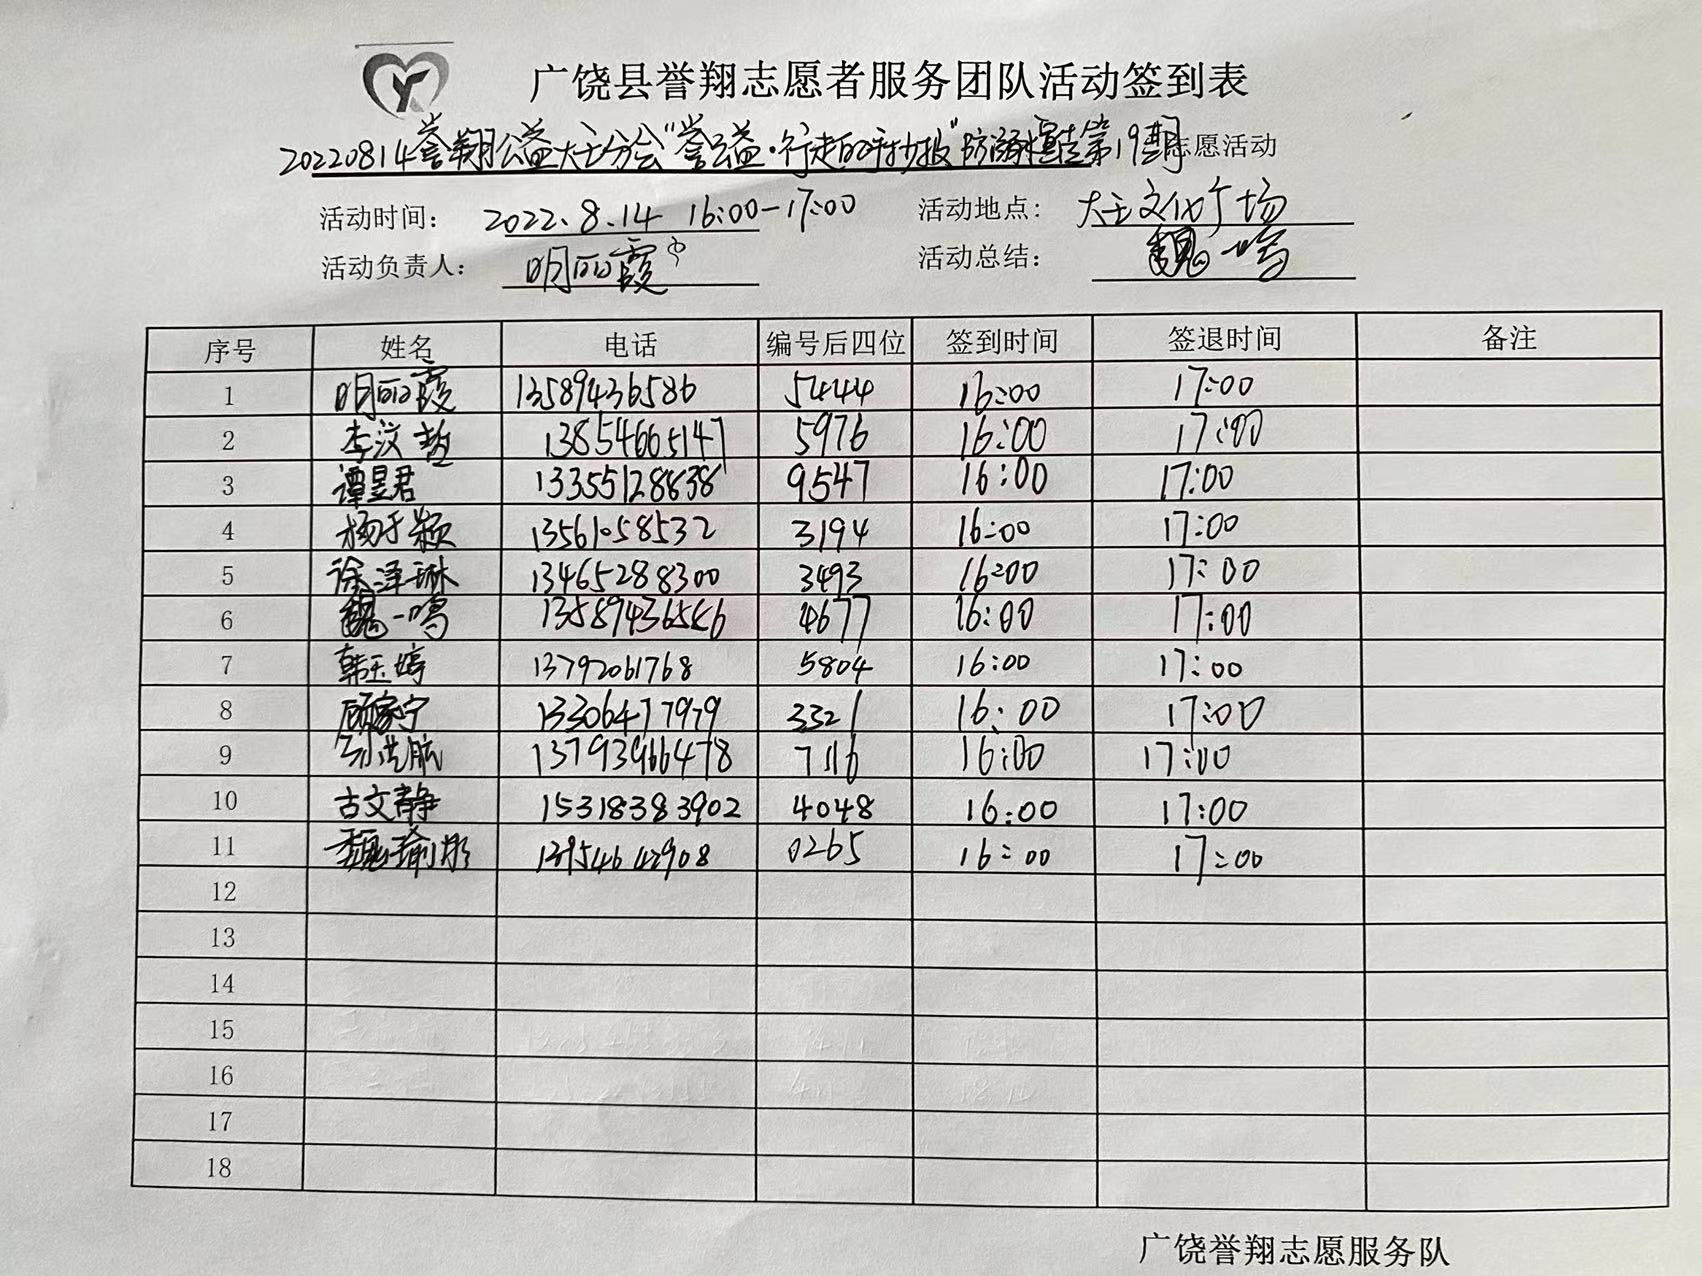 广饶县誉翔志愿者服务团队活动签到表
20220814誉翔公益大王分会“誉公益·行走的手抄报”防溺水宣传第19期志愿活动
活动时间: 2022.8.14 16:00-17:00 活动地点: 大王文化广场
活动负责人: 明丽霞 活动总结: 魏一鸣
序号 姓名 电话 编号后四位 签到时间 签退时间 备注
1 明丽霞 13589436586 5444 16:00 17:00
2 李汶哲 13854665147 5976 16:00 17:00
3 谭昱君 13355128838 9547 16:00 17:00
4 杨于颖 13561058532 3194 16:00 17:00
5 徐泽琳 13465288300 3493 16:00 17:00
6 魏一鸣 13589436586 4677 16:00 17:00
7 韩玉婷 13792061768 5804 16:00 17:00
8 顾家宁 13306477979 3321 16:00 17:00
9 16:00 17:00
10 古文静 15318383902 4048 16:00 17:00
11 魏瑜彤 13954642908 0265 16:00 17:00
12
13
14
15
16
17
18
广饶誉翔志愿服务队